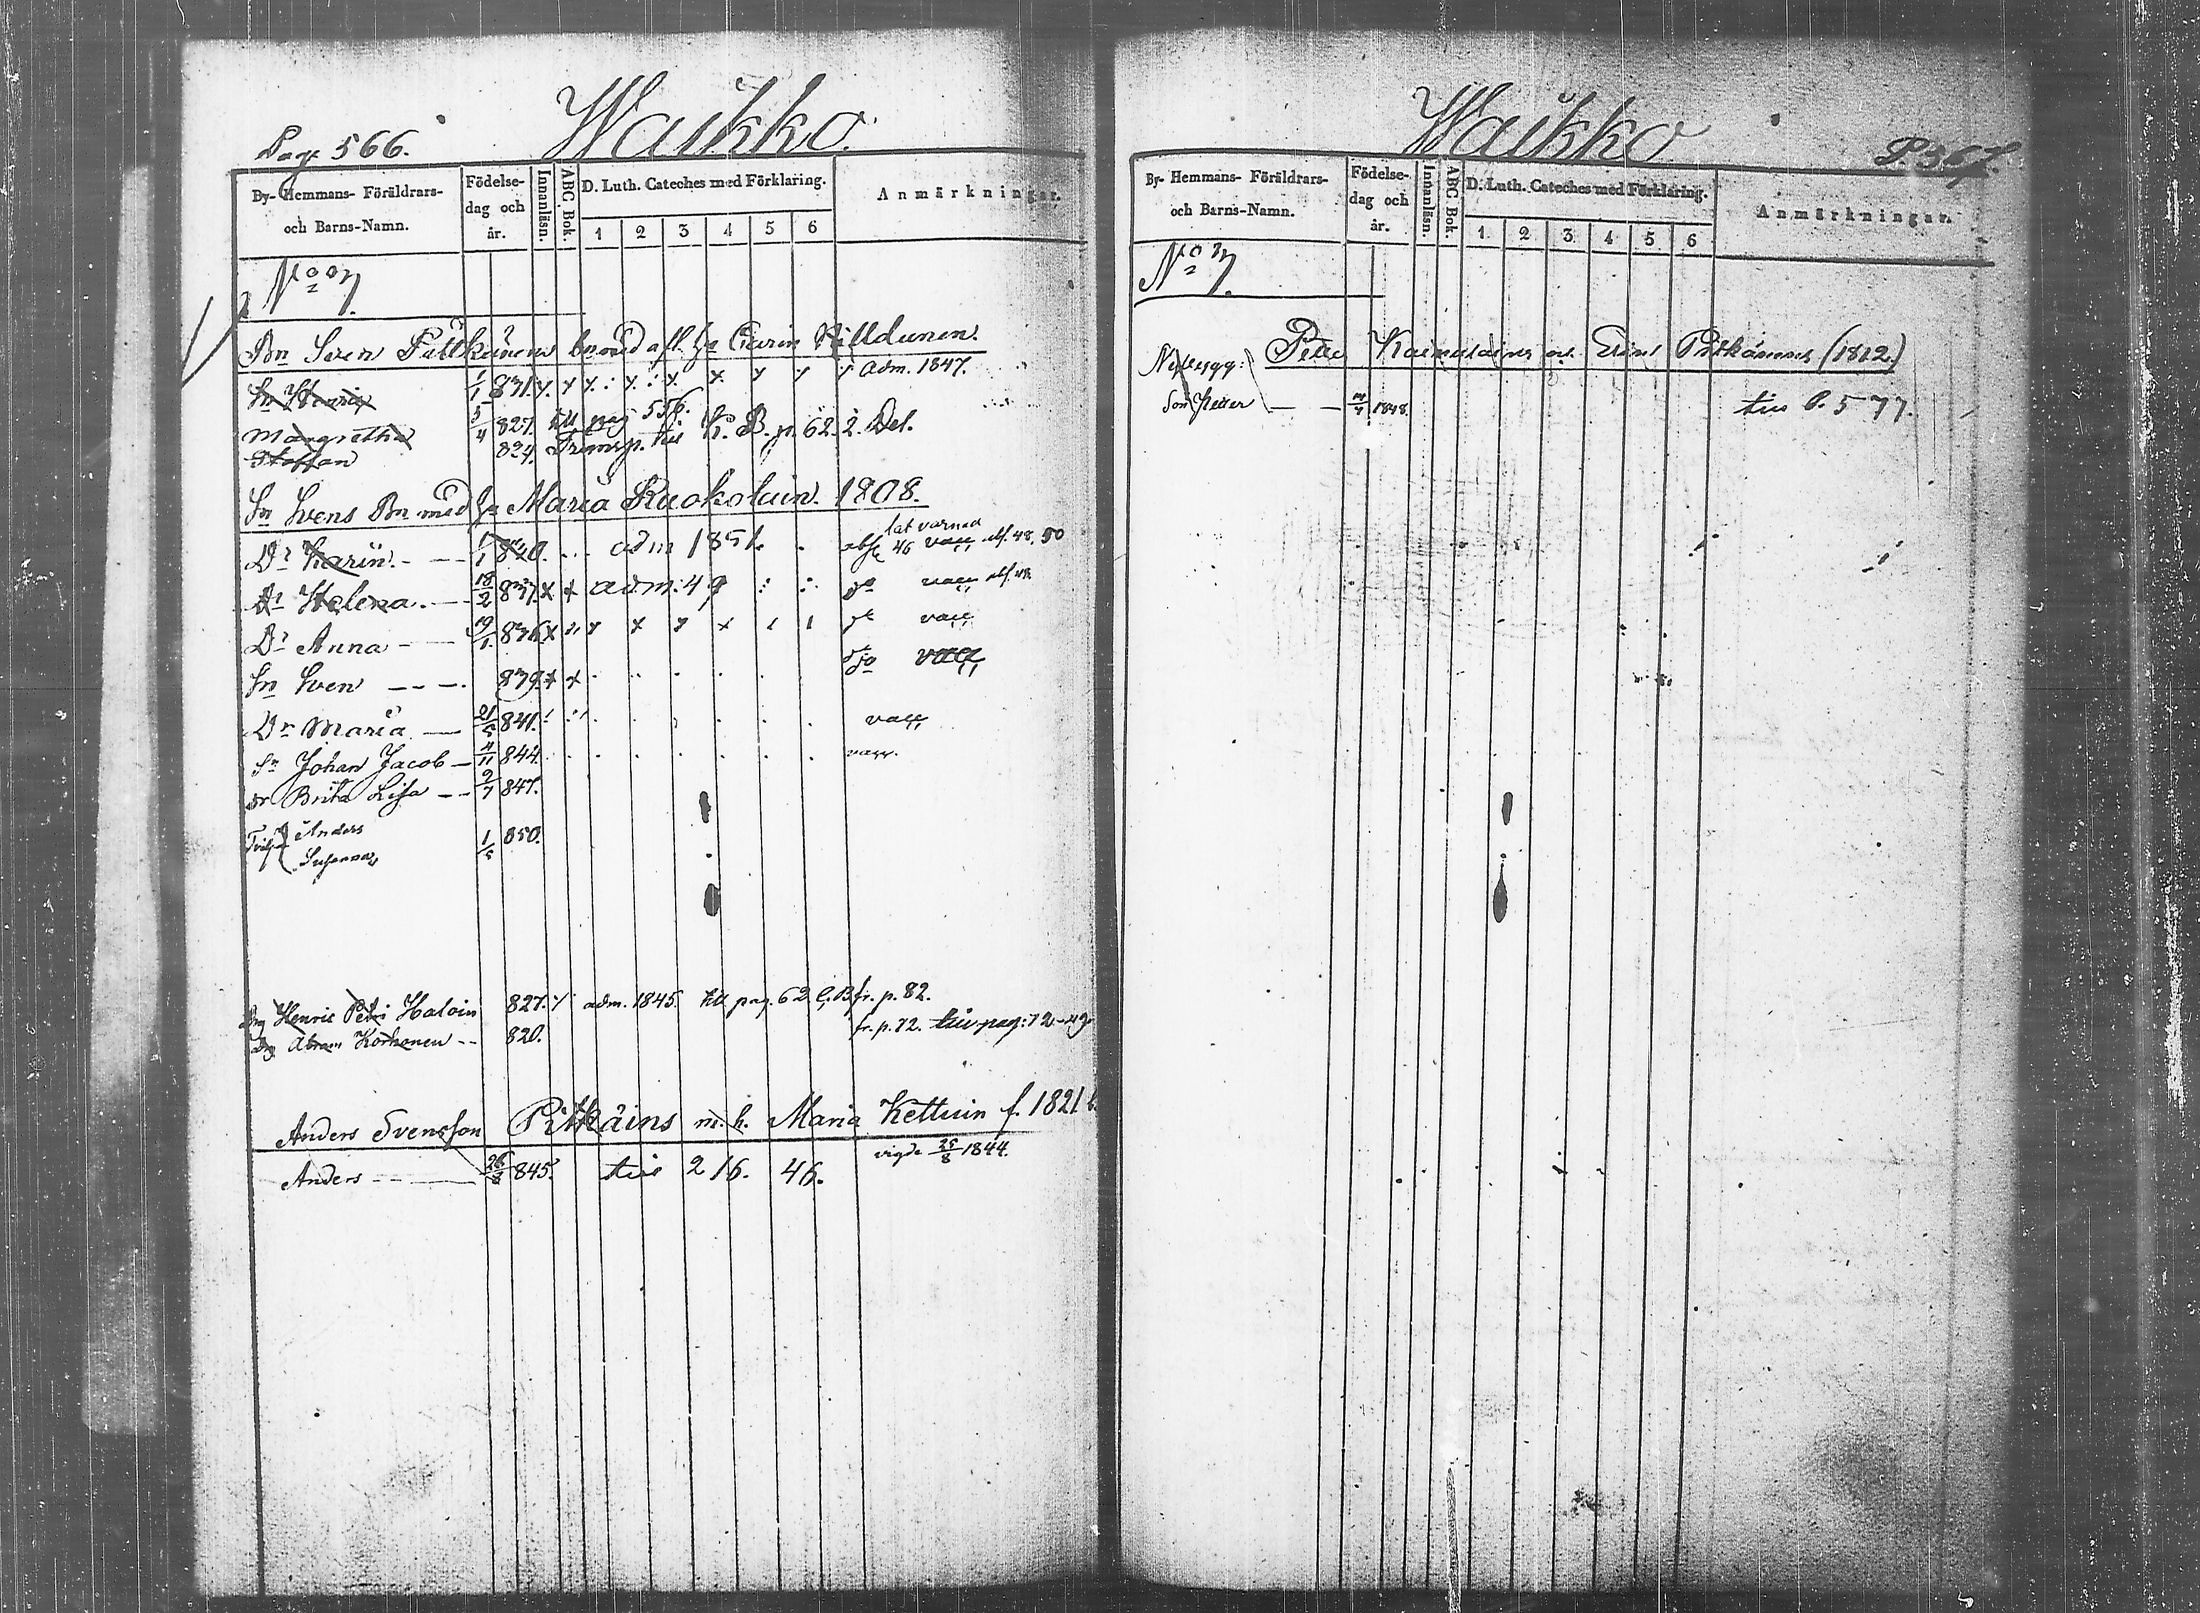 Pag. 566.
Waikko.
By- Hemmans- Föräldrars- och Barns-Namn.
Födelse-dag och år.
Innanläsn.
ABC Bok.
D. Luth. Cateches med Förklaring.
1 2 3 4 5 6
Anmärkningar.
No 7.
Bn Sven Pittkäinens med afl.
Sn Henric 1/1 831. Adm. 1847.
Margretha 5/4 827. till pag 556.
Staffan 824. Transp. till K. B. p. 62. 2. Del.
Sn Svens Bn med Maria Ruokolain. 1808.
Dr Karin 840. adm 1851. 46 vacc 48. 50
Dr Helena 18/2 837. adm: 49 do vacc 48
Dr Anna 19/1 836 vacc
Sn Sven 839. do vacc
Dr Maria 21/5 841. vacc
Sn Johan Jacob 4/11 844. vacc.
Dr Brita Lisa 9/7 847.
Anders
Susanna 1/5 850.
Drg Henric Petri Haloin 827. adm. 1845. till pag. 62 C. B fr. p. 82.
Drg Abram Korhonen 820. fr. p. 72. till pag: 72
Anders Svensson Pitkäins m. h. Maria Kettuin f. 1821
vigde 25/8 1844.
Anders 845. till 216. 46.
Waikko
P. 567.
By- Hemmans- Föräldrars- och Barns-Namn.
Födelse-dag och år.
Innanläsn.
ABC Bok.
D. Luth. Cateches med Förklaring.
1 2 3 4 5 6
Anmärkningar.
No 7.
Pitkänens (1812.)
Son Petter 1848. till P. 577.